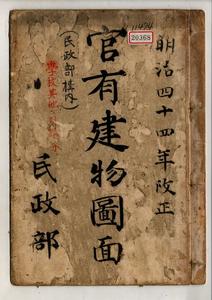 明治四十四年改正
官有建物圖面
(民政部構内)
民政部
11494
20368